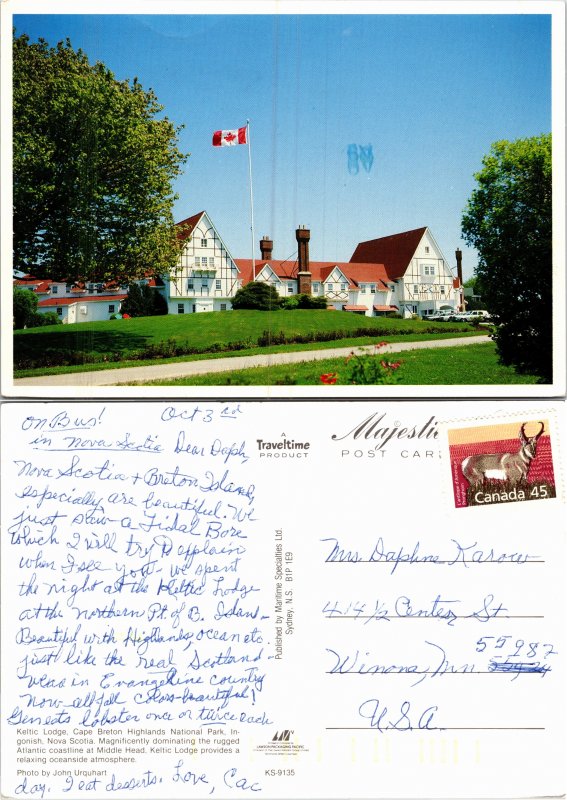 on Bus!
Oct 3rd
in Nova Scotia Dear Daph,
Nova Scotia + Breton Island,
especially, are beautiful. We
just saw a Tidal Bore
which I will try to explain
when I see you - we spent
the night at the Keltic Lodge
at the northern Pt. of B. Island -
Beautiful with Highlands, ocean etc.
just like the real Scotland -
was in Evangeline country
now - all fall colors - beautiful!
Gen eats lobster once or twice each
day. I eat desserts. Love, Cac
Keltic Lodge, Cape Breton Highlands National Park, In-
gonish, Nova Scotia. Magnificently dominating the rugged
Atlantic coastline at Middle Head. Keltic Lodge provides a
relaxing oceanside atmosphere.
Photo by John Urquhart
KS-9135
A
Traveltime
PRODUCT
Majestic
POST CARD
Published by Maritime Specialties Ltd.
Sydney, N.S. B1P 1E9
LAWSON PACKAGING PACIFIC
Canada 45
Mrs Daphne Karow
414 1/2 Center St
Winona, Mn. 55987
U.S.A.